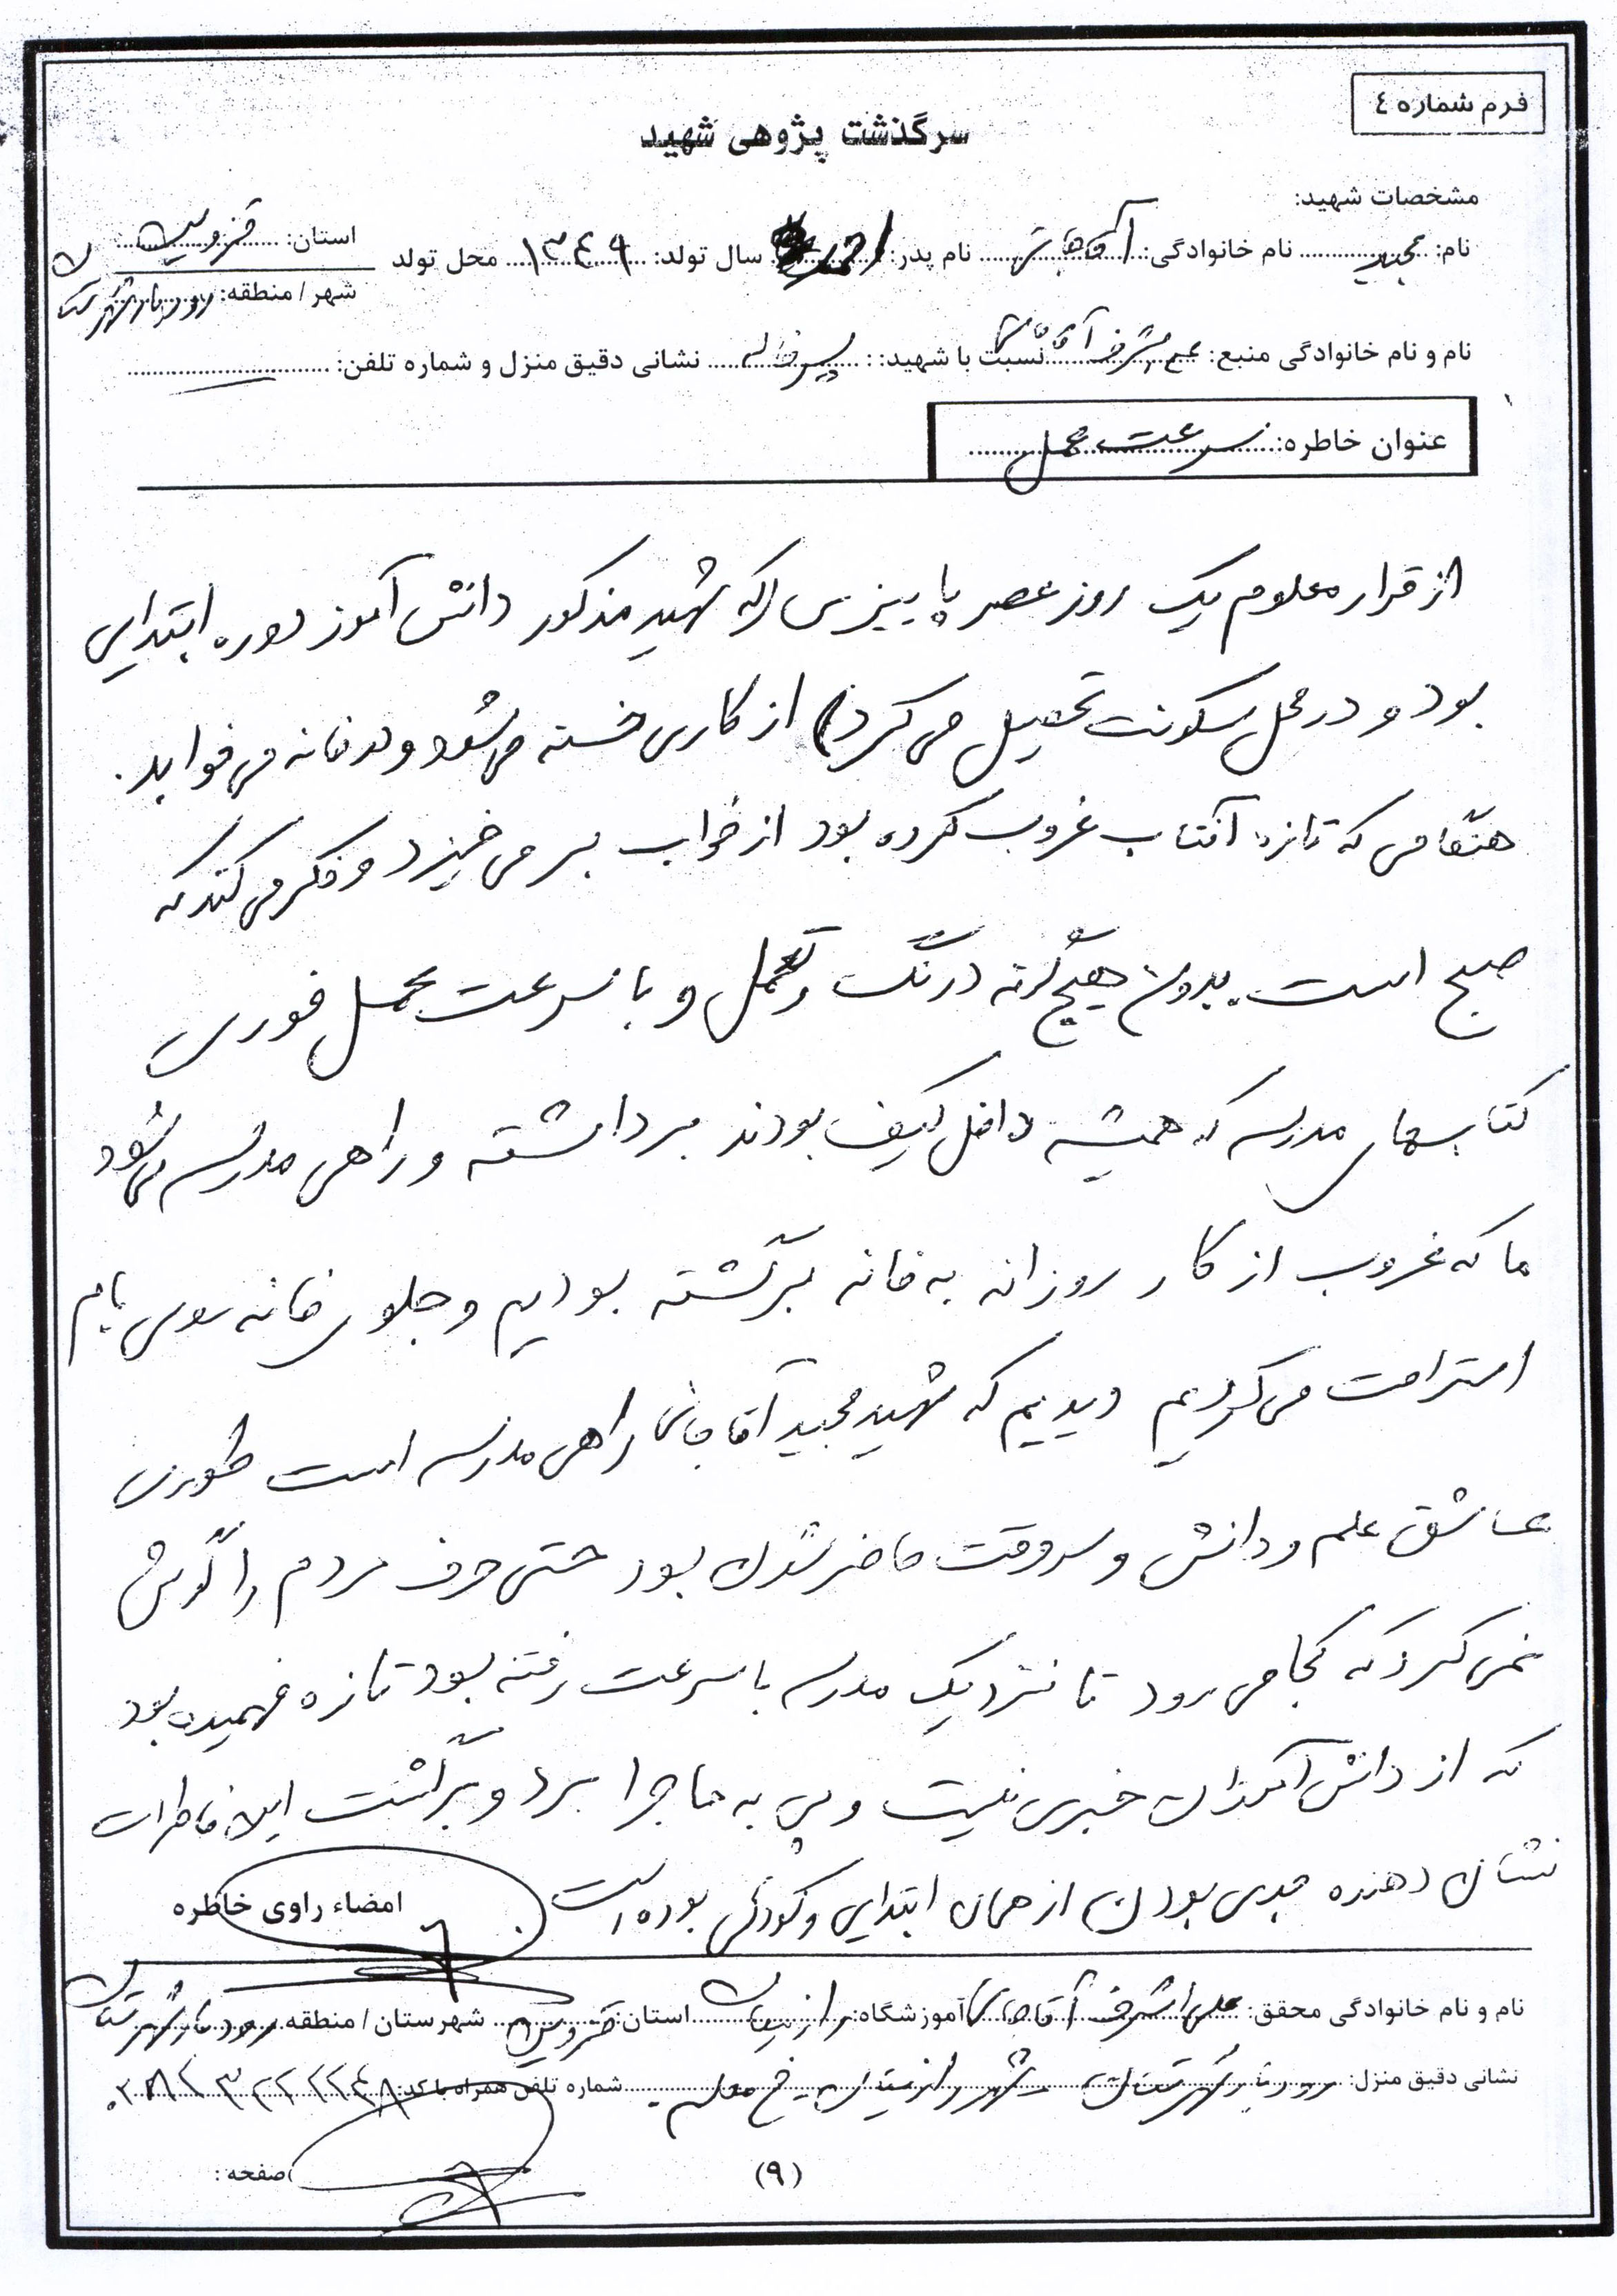 فرم شماره ٤
سرگذشت پژوهی شهید
مشخصات شهید:
نام: مجید نام خانوادگی: آقاجانی نام پدر: احمد سال تولد: ۱۳٤۹ محل تولد استان: قزوین
شهر / منطقه: رودبار شهرستان
نام و نام خانوادگی منبع: آقاجانی نسبت با شهید: پسرخاله نشانی دقیق منزل و شماره تلفن:
عنوان خاطره: سرعت عمل
از قرار معلوم یک روز عصر پاییزی (که شهید مذکور دانش آموز دوره ابتدایی
بود و در محل سکونت تحصیل می کرد) از کاری خسته می شود و در خانه می خوابد.
هنگامی که تازه آفتاب غروب کرده بود از خواب بر می خیزد و فکر می کند که
صبح است بدون هیچگونه درنگ و تحمل و با سرعت عمل فوری
کتابهای مدرسه که همیشه داخل کیف بودند برداشته و راهی مدرسه می شود
ما که غروب از کار روزانه به خانه برگشته بودیم و جلوی خانه روی بام
استراحت می کردیم دیدیم که شهید مجید آقاجانی راهی مدرسه است طوری
عاشق علم و دانش و سروقت حاضر شدن بود حتی حرف مردم را گوش
نمی کرد که کجا می رود تا نزدیک مدرسه با سرعت رفته بود تازه فهمیده بود
که از دانش آموزان خبری نیست و پی به ماجرا برد و برگشت این خاطرات
نشان دهنده جدی بودن از همان ابتدایی و کودکی بوده است
امضاء راوی خاطره
نام و نام خانوادگی محقق: علی اشرف آقاجانی آموزشگاه: رازمیان استان: قزوین شهرستان / منطقه رودبار شهرستان
نشانی دقیق منزل: رودبار شهرستان شهر رازمیان معلم شماره تلفن همراه با کد: ۰۲۸۲۳۲۲۲۲٤۸
(۹)
صفحه :